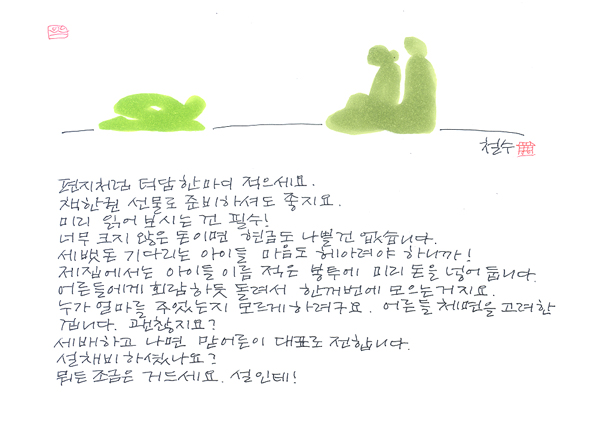 철수
편지처럼 덕담 한마디 적으세요.
책한권 선물로 준비하셔도 좋지요.
미리 읽어 보시는 건 필수!
너무 크지 않은 돈이면 현금도 나쁠건 없습니다.
세뱃돈 기다리는 아이들 마음도 헤아려야 하니까!
제집에서는 아이들 이름 적은 봉투에 미리 돈을 넣어 둡니다.
어른들에게 회람하듯 돌려서 한꺼번에 모으는거지요.
누가 얼마를 주었는지 모르게 하려구요. 어른들 체면을 고려한
겁니다. 괜찮지요?
세배하고 나면 맏어른이 대표로 전합니다.
설채비 하셨나요?
뭐든 조금은 거드세요. 설인데!